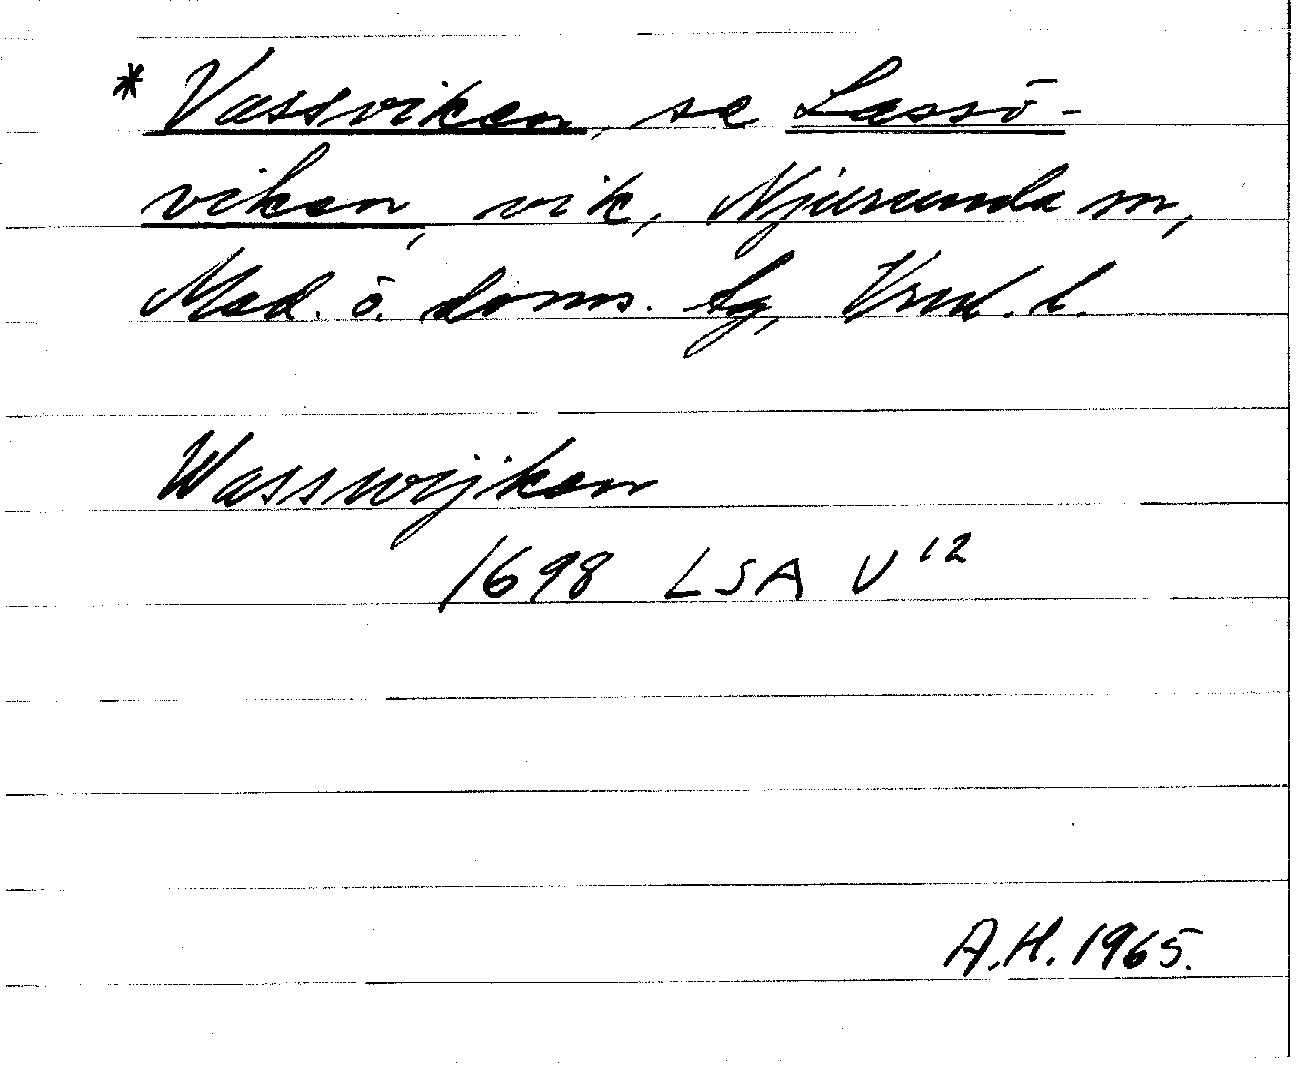 * Vassviken, se Lassö-
viken, vik, Njurunda sn,
Med. ö. doms. tg, Vnl. l.
Wasswijken
1698 LSA V 12
A.H. 1965.